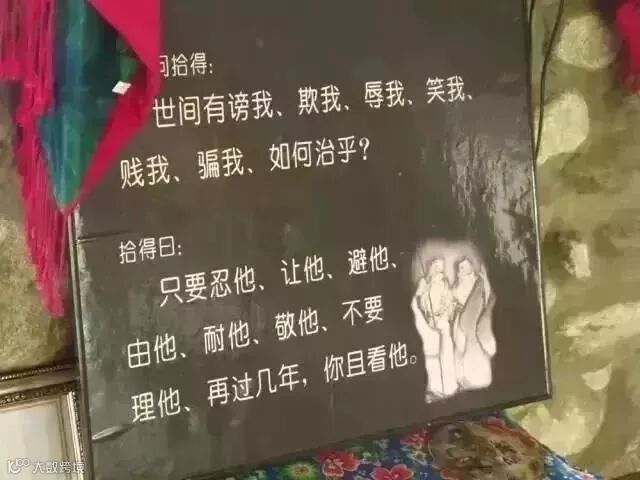 问拾得：
世间有谤我、欺我、辱我、笑我、
贱我、骗我、如何治乎？
拾得曰：
只要忍他、让他、避他、
由他、耐他、敬他、不要
理他、再过几年，你且看他。
大数跨境